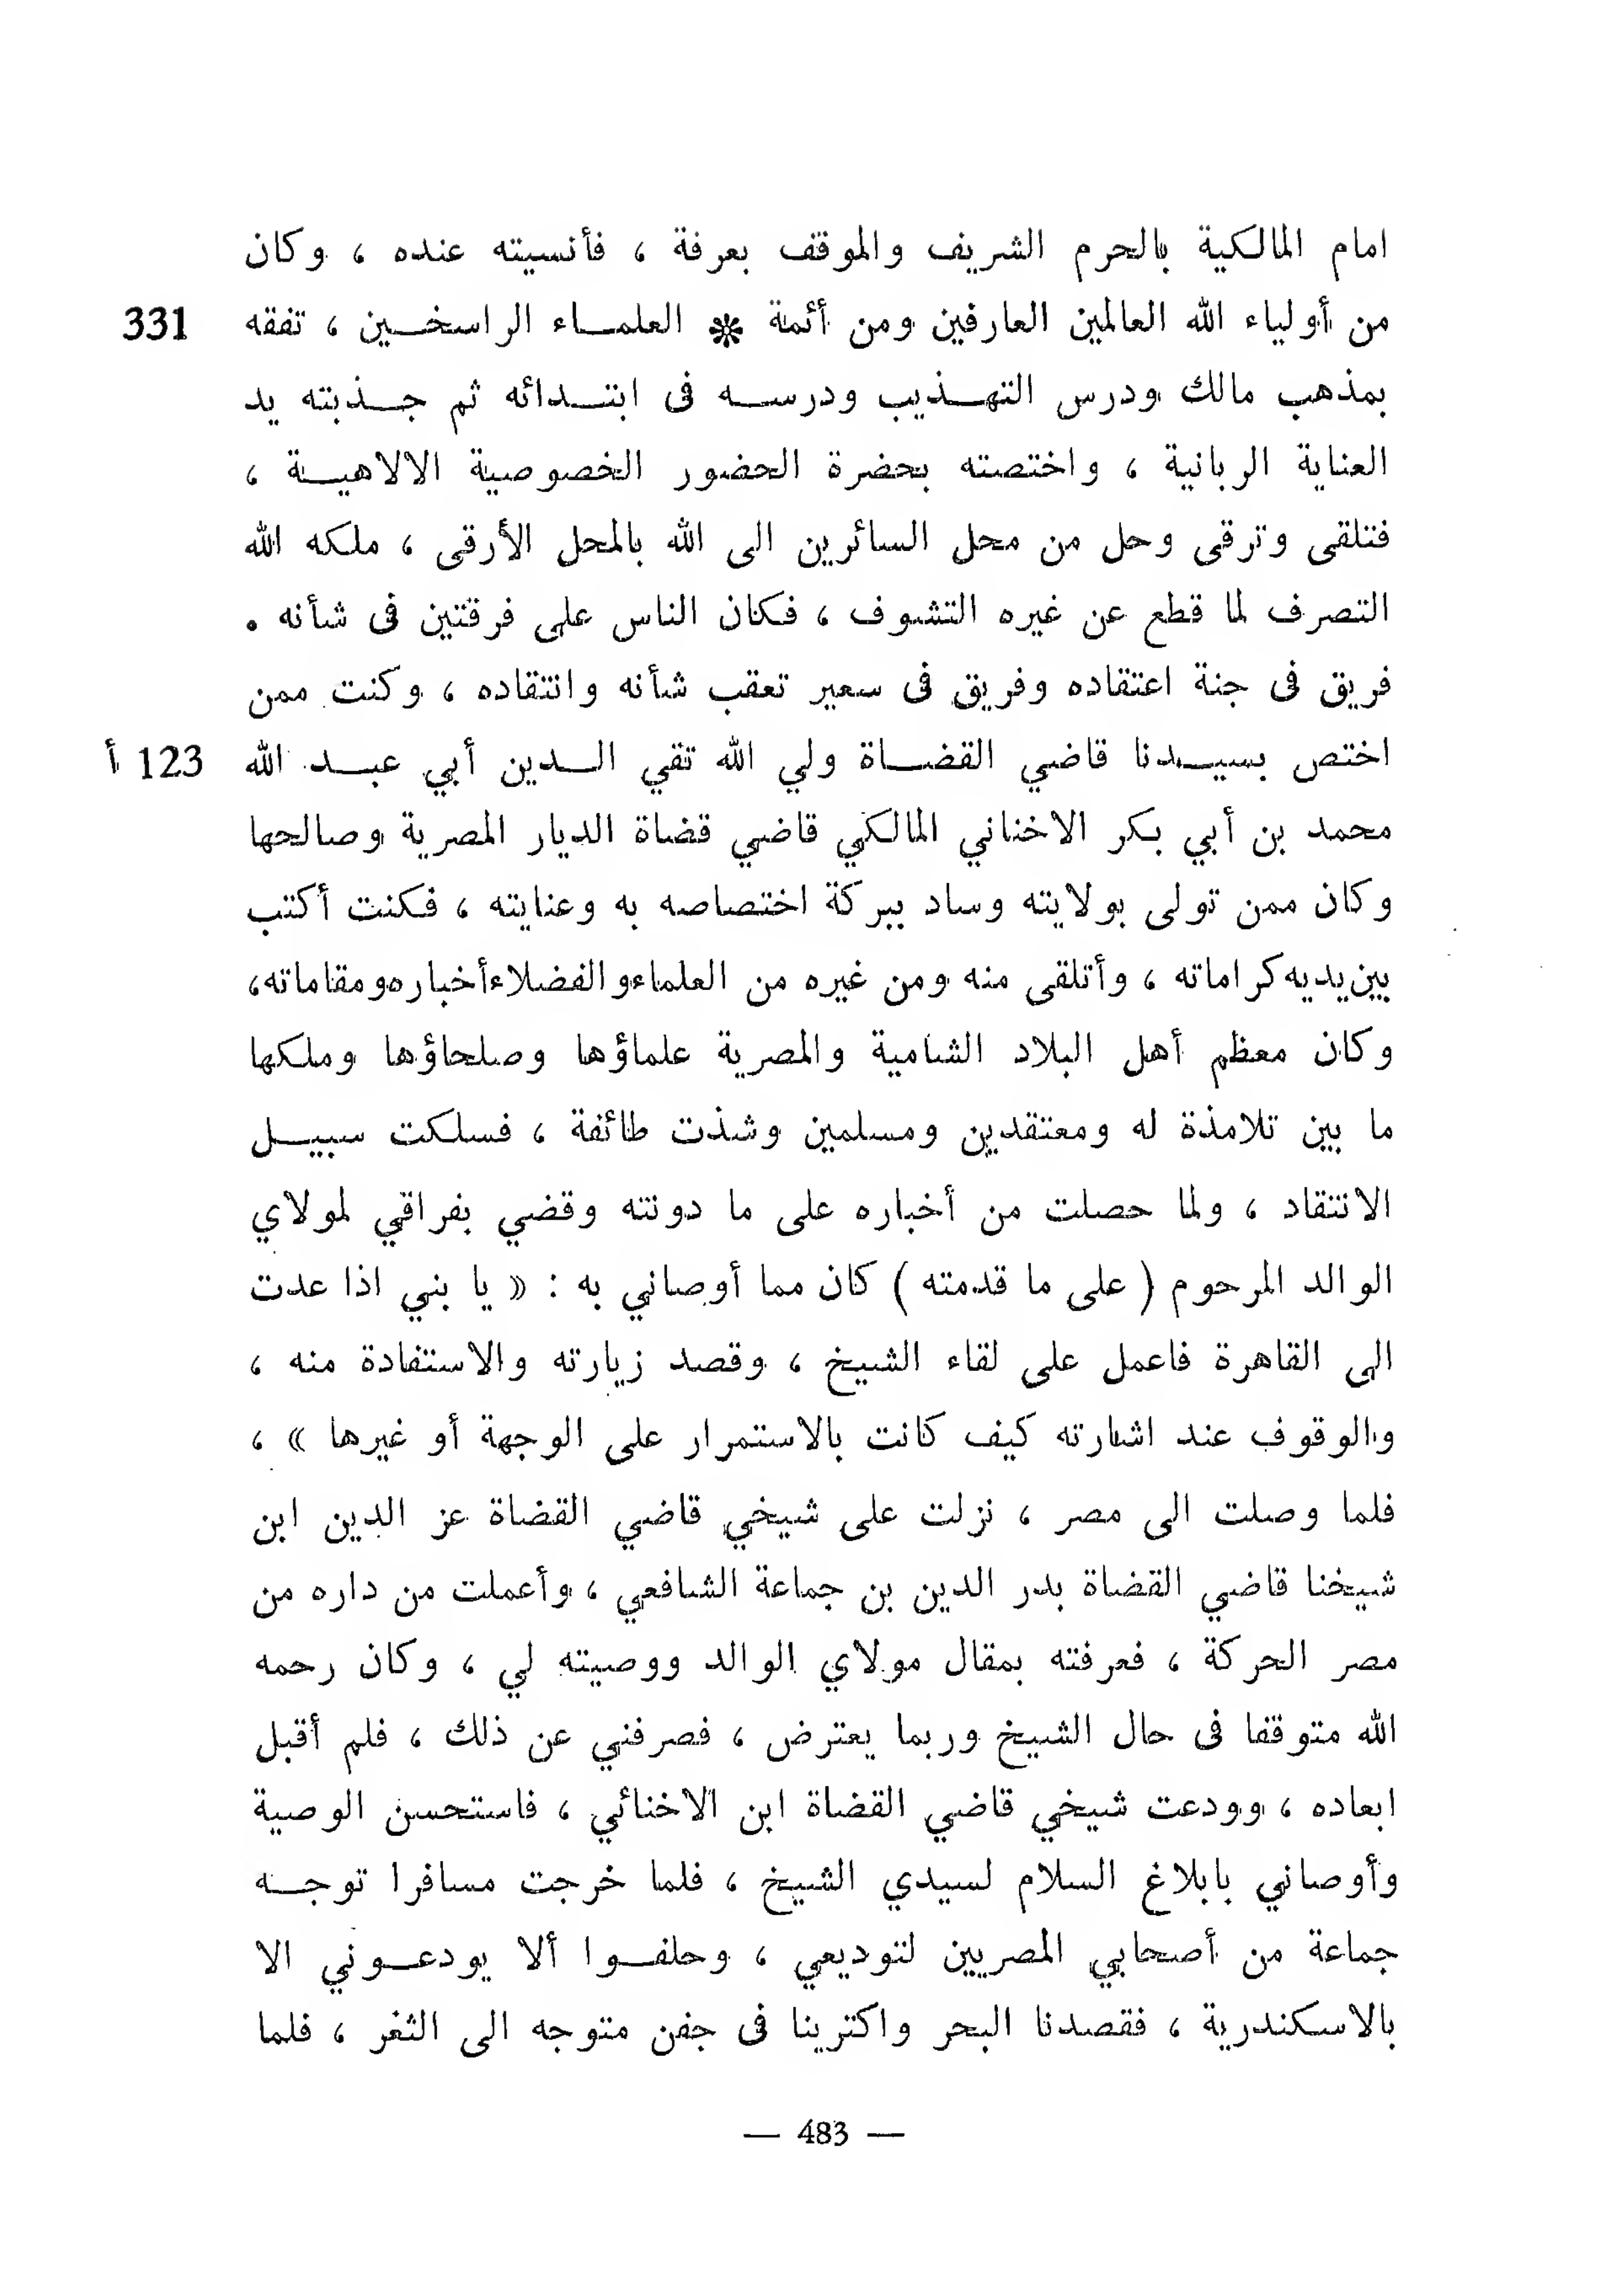 امام المالكية بالحرم الشريف والموقف بعرفة ، فأنسيته عنده ، وكان
من أولياء الله العالمين العارفين ومن أئمة * العلمــاء الراسخــين ، تفقه 331
بمذهب مالك ودرس التهــذيب ودرســه فى ابتــدائه ثم جــذبته يد
العناية الربانية ، واختصته بحضرة الحضور الخصوصية الالاهيــة ،
فتلقى وترقى وحل من محل السائرين الى الله بالمحل الأرقى ، ملكه الله
التصرف لما قطع عن غيره التشوف ، فكان الناس على فرقتين فى شأنه .
فريق فى جنة اعتقاده وفريق فى سعير تعقب شأنه وانتقاده ، وكنت ممن
اختص بسيــدنا قاضي القضــاة ولي الله تقي الــدين أبي عبــد الله 123 أ
محمد بن أبي بكر الاخنائي المالكي قاضي قضاة الديار المصرية وصالحها
وكان ممن تولى بولايته وساد ببركة اختصاصه به وعنايته ، فكنت أكتب
بين يديه كراماته ، وأتلقى منه ومن غيره من العلماء والفضلاء أخباره ومقاماته،
وكان معظم أهل البلاد الشامية والمصرية علماؤها وصلحاؤها وملكها
ما بين تلامذة له ومعتقدين ومسلمين وشذت طائفة ، فسلكت سبيــل
الانتقاد ، ولما حصلت من أخباره على ما دونته وقضي بفراقي لمولاي
الوالد المرحوم ( على ما قدمته ) كان مما أوصاني به : « يا بني اذا عدت
الى القاهرة فاعمل على لقاء الشيخ ، وقصد زيارته والاستفادة منه ،
والوقوف عند اشارته كيف كانت بالاستمرار على الوجهة أو غيرها » ،
فلما وصلت الى مصر ، نزلت على شيخي قاضي القضاة عز الدين ابن
شيخنا قاضي القضاة بدر الدين بن جماعة الشافعي ، وأعملت من داره من
مصر الحركة ، فعرفته بمقال مولاي الوالد ووصيته لي ، وكان رحمه
الله متوقفا فى حال الشيخ وربما يعترض ، فصرفني عن ذلك ، فلم أقبل
ابعاده ، وودعت شيخي قاضي القضاة ابن الاخنائي ، فاستحسن الوصية
وأوصاني بابلاغ السلام لسيدي الشيخ ، فلما خرجت مسافرا توجــه
جماعة من أصحابي المصريين لتوديعي ، وحلفــوا ألا يودعــوني الا
بالاسكندرية ، فقصدنا البحر واكترينا فى جفن متوجه الى الثغر ، فلما
— 483 —